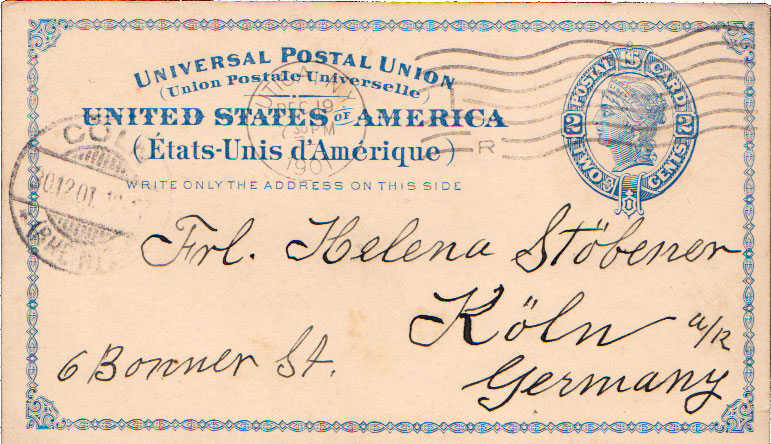 UNIVERSAL POSTAL UNION
(Union Postale Universelle)
UNITED STATES OF AMERICA
(États-Unis d'Amérique)
WRITE ONLY THE ADDRESS ON THIS SIDE
POSTAL CARD
TWO CENTS
2 2
UTICA, N.Y.
DEC 19
PM
1901
R
CÖL
12.01
Frl. Helena Stöbener
Köln a/R
6 Bonner St.
Germany